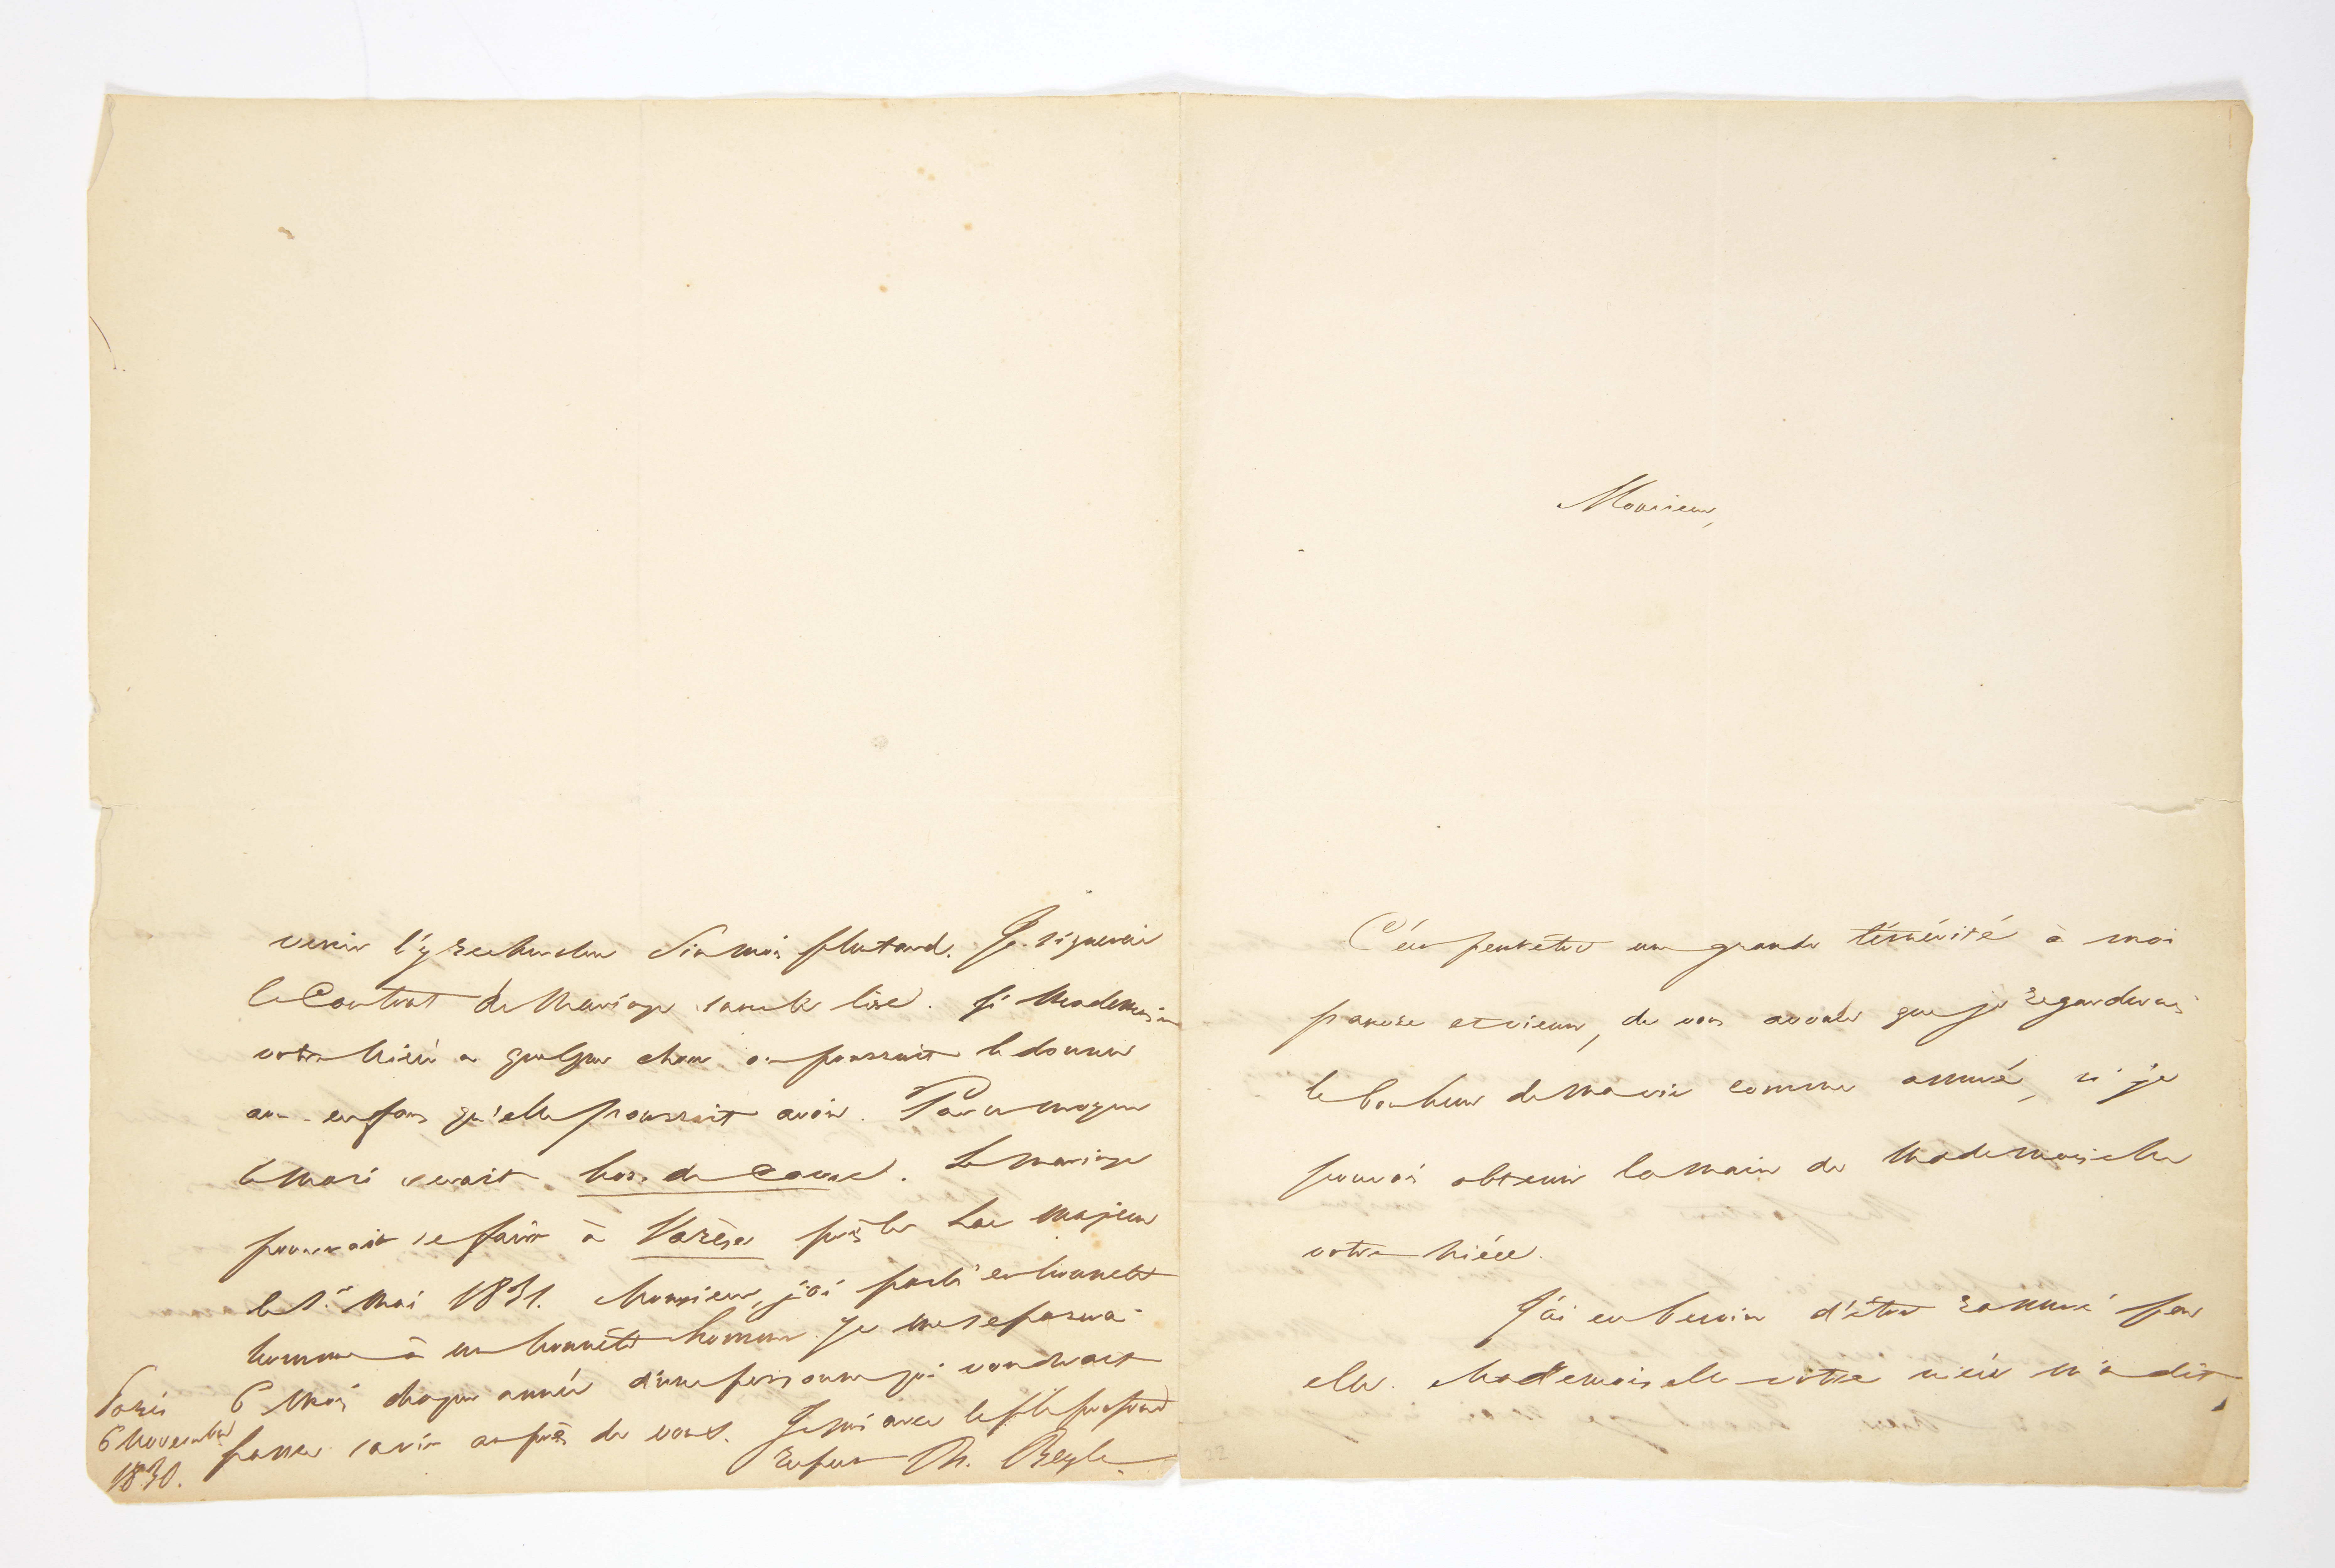 venir l'y rechercher six mois plus tard. Je signerai
le Contrat de Mariage sans le lire. Si Mademoiselle
votre nièce a quelque chose on pourrait le donner
aux enfans qu'elle pourrait avoir. Par ce moyen
le Mari serait hors de cause. Le mariage
pourrait se faire à Varèse près le Lac majeur
le 1er Mai 1831. Monsieur, j'ai parlé en honnête
homme à un honnête homme. Je me séparerai
6 Mois chaque année d'une personne qui voudrait
passer sa vie auprès de vous. Je suis avec le plus profond
respect H. Beyle.
Paris
6 Novembre
1830.
Monsieur,
C'est peut être une grande témérité à moi
pauvre et vieux, de vous avouer que je regarderais
le bonheur de ma vie comme assuré, si je
pouvais obtenir la main de Mademoiselle
votre nièce.
J'ai eu besoin d'être ranimé par
elle. Mademoiselle votre nièce m'a dit